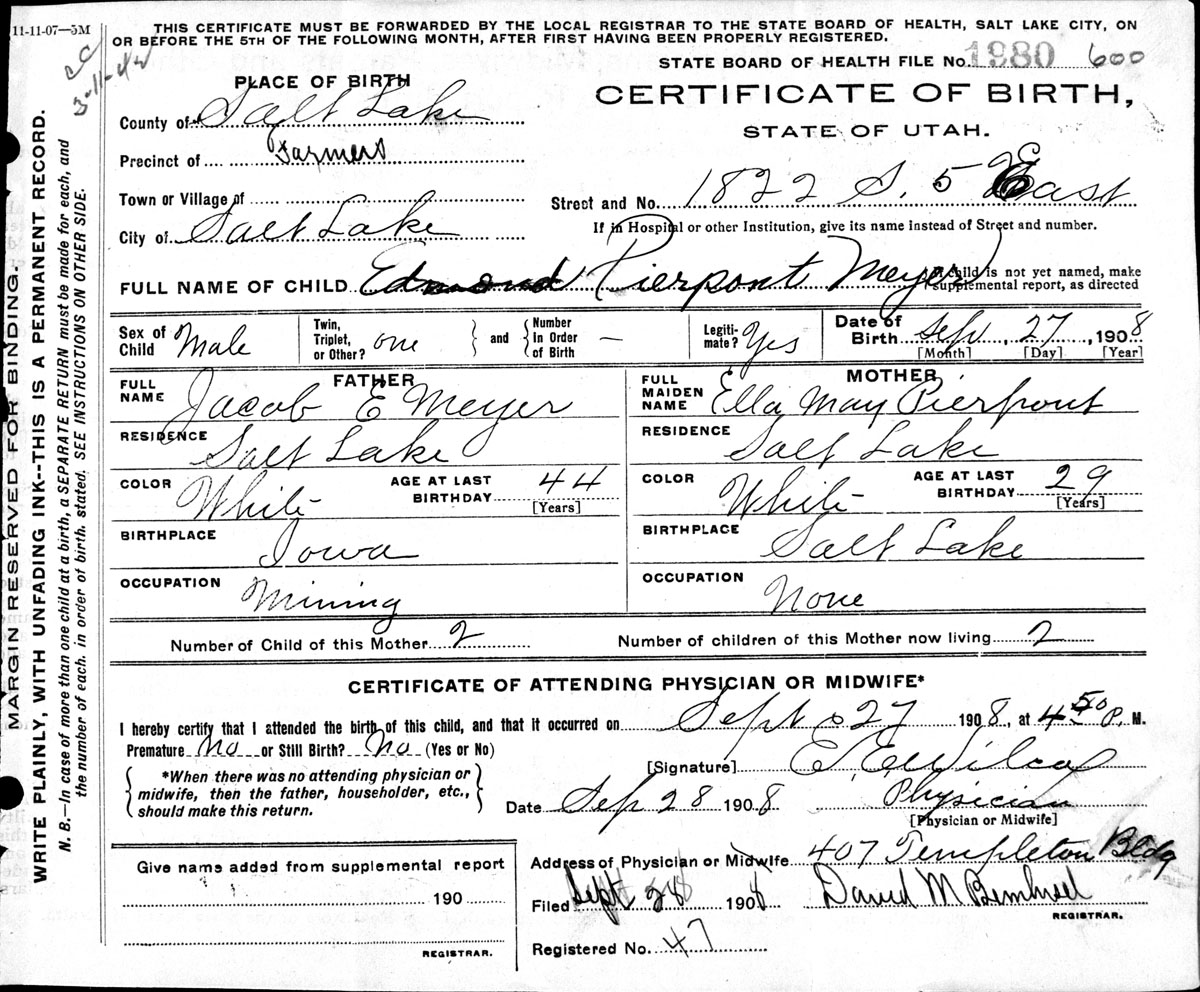 11-11-07—5M
THIS CERTIFICATE MUST BE FORWARDED BY THE LOCAL REGISTRAR TO THE STATE BOARD OF HEALTH, SALT LAKE CITY, ON
OR BEFORE THE 5TH OF THE FOLLOWING MONTH, AFTER FIRST HAVING BEEN PROPERLY REGISTERED.
3-11-42
STATE BOARD OF HEALTH FILE No. 1980 600
PLACE OF BIRTH
CERTIFICATE OF BIRTH,
STATE OF UTAH.
County of Salt Lake
Precinct of Farmers
Town or Village of
Street and No. 1822 S. 5 East
City of Salt Lake
If in Hospital or other Institution, give its name instead of Street and number.
FULL NAME OF CHILD Edmond Pierpont Meyer
If child is not yet named, make
supplemental report, as directed
Sex of Child Male
Twin, Triplet, or Other? one
and
Number In Order of Birth —
Legiti-mate? Yes
Date of Birth Sep, 27, 1908
[Month] [Day] [Year]
FATHER
FULL NAME Jacob E Meyer
RESIDENCE Salt Lake
COLOR White
AGE AT LAST BIRTHDAY 44
[Years]
BIRTHPLACE Iowa
OCCUPATION Mining
MOTHER
FULL MAIDEN NAME Ella May Pierpont
RESIDENCE Salt Lake
COLOR White
AGE AT LAST BIRTHDAY 29
[Years]
BIRTHPLACE Salt Lake
OCCUPATION None
Number of Child of this Mother 2 Number of children of this Mother now living 2
CERTIFICATE OF ATTENDING PHYSICIAN OR MIDWIFE*
I hereby certify that I attended the birth of this child, and that it occurred on Sept 27 1908, at 4 50 P. M.
Premature No or Still Birth? No (Yes or No)
[Signature] E. E. Wilcox
*When there was no attending physician or
midwife, then the father, householder, etc.,
should make this return.
Date Sep 28 1908
Physician
[Physician or Midwife]
Give name added from supplemental report
190
REGISTRAR.
Address of Physician or Midwife 407 Templeton Bldg
Filed Sept 28 1908 David M
REGISTRAR.
Registered No. 47
MARGIN RESERVED FOR BINDING.
WRITE PLAINLY, WITH UNFADING INK--THIS IS A PERMANENT RECORD.
N. B.—In case of more than one child at a birth, a SEPARATE RETURN must be made for each, and
the number of each, in order of birth, stated. SEE INSTRUCTIONS ON OTHER SIDE.